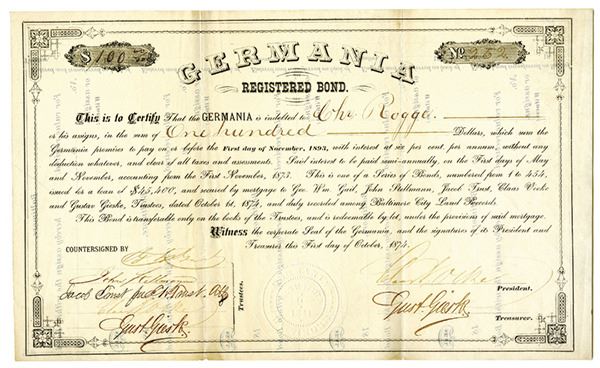 $ 100
No. 252
GERMANIA
REGISTERED BOND.
This is to Certify That the GERMANIA is indebted to Chr. Rogge
or his assigns, in the sum of One hundred Dollars, which sum the
Germania promises to pay on or before the First day of November, 1893, with interest at six per cent. per annum without any
deduction whatever, and clear of all taxes and assessments. Said interest to be paid semi-annually, on the First days of May
and November, accounting from the First November, 1873. This is one of a Series of Bonds, numbered from 1 to 454,
issued for a loan of $45,400, and secured by mortgage to Geo. Wm. Gail, John Stellmann, Jacob Trust, Claas Vocke
and Gustav Gieske, Trustees, dated October 1st, 1874, and duly recorded among Baltimore City Land Records.
This Bond is transferable only on the books of the Trustees, and is redeemable by lot, under the provisions of said mortgage.
Witness the corporate Seal of the Germania, and the signatures of its President and
Treasurer this First day of October, 1874.
COUNTERSIGNED BY
John Stellmann
Jacob Trust
Gust Gieske
Trustees.
President.
Gust. Gieske
Treasurer.